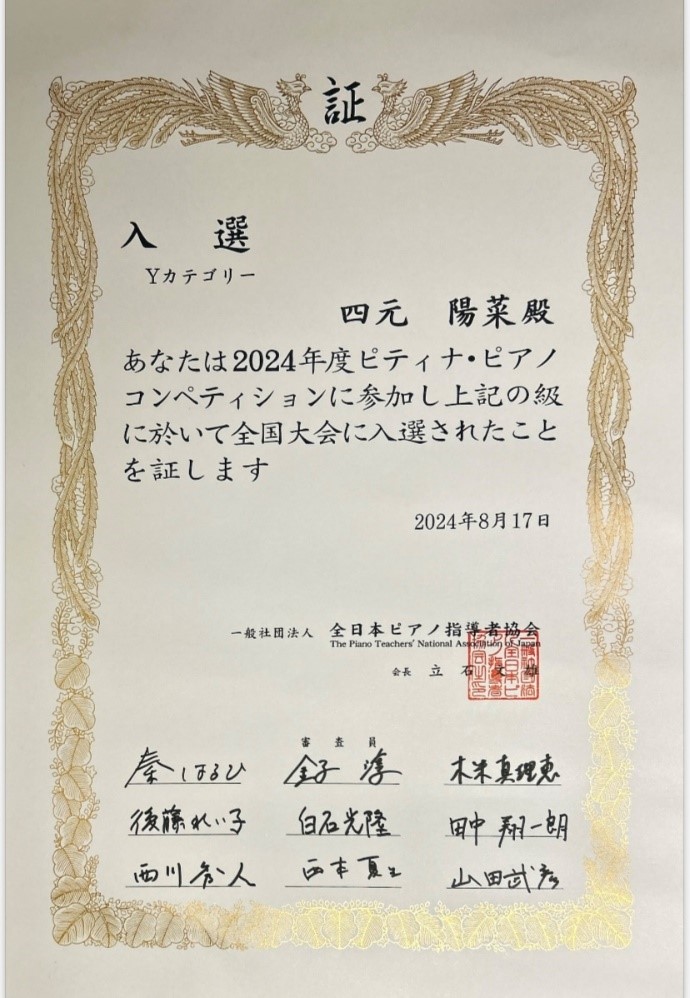 証
入 選
Yカテゴリー
四元 陽菜殿
あなたは2024年度ピティナ・ピアノ
コンペティションに参加し上記の級
に於いて全国大会に入選されたこと
を証します
2024年8月17日
一般社団法人 全日本ピアノ指導者協会
The Piano Teachers' National Association of Japan
会長 立石文雄
審査員
秦はるひ 金子 淳 木米真理恵
後藤れい子 白石光隆 田中翔一朗
西川 人 西本夏生 山田武彦